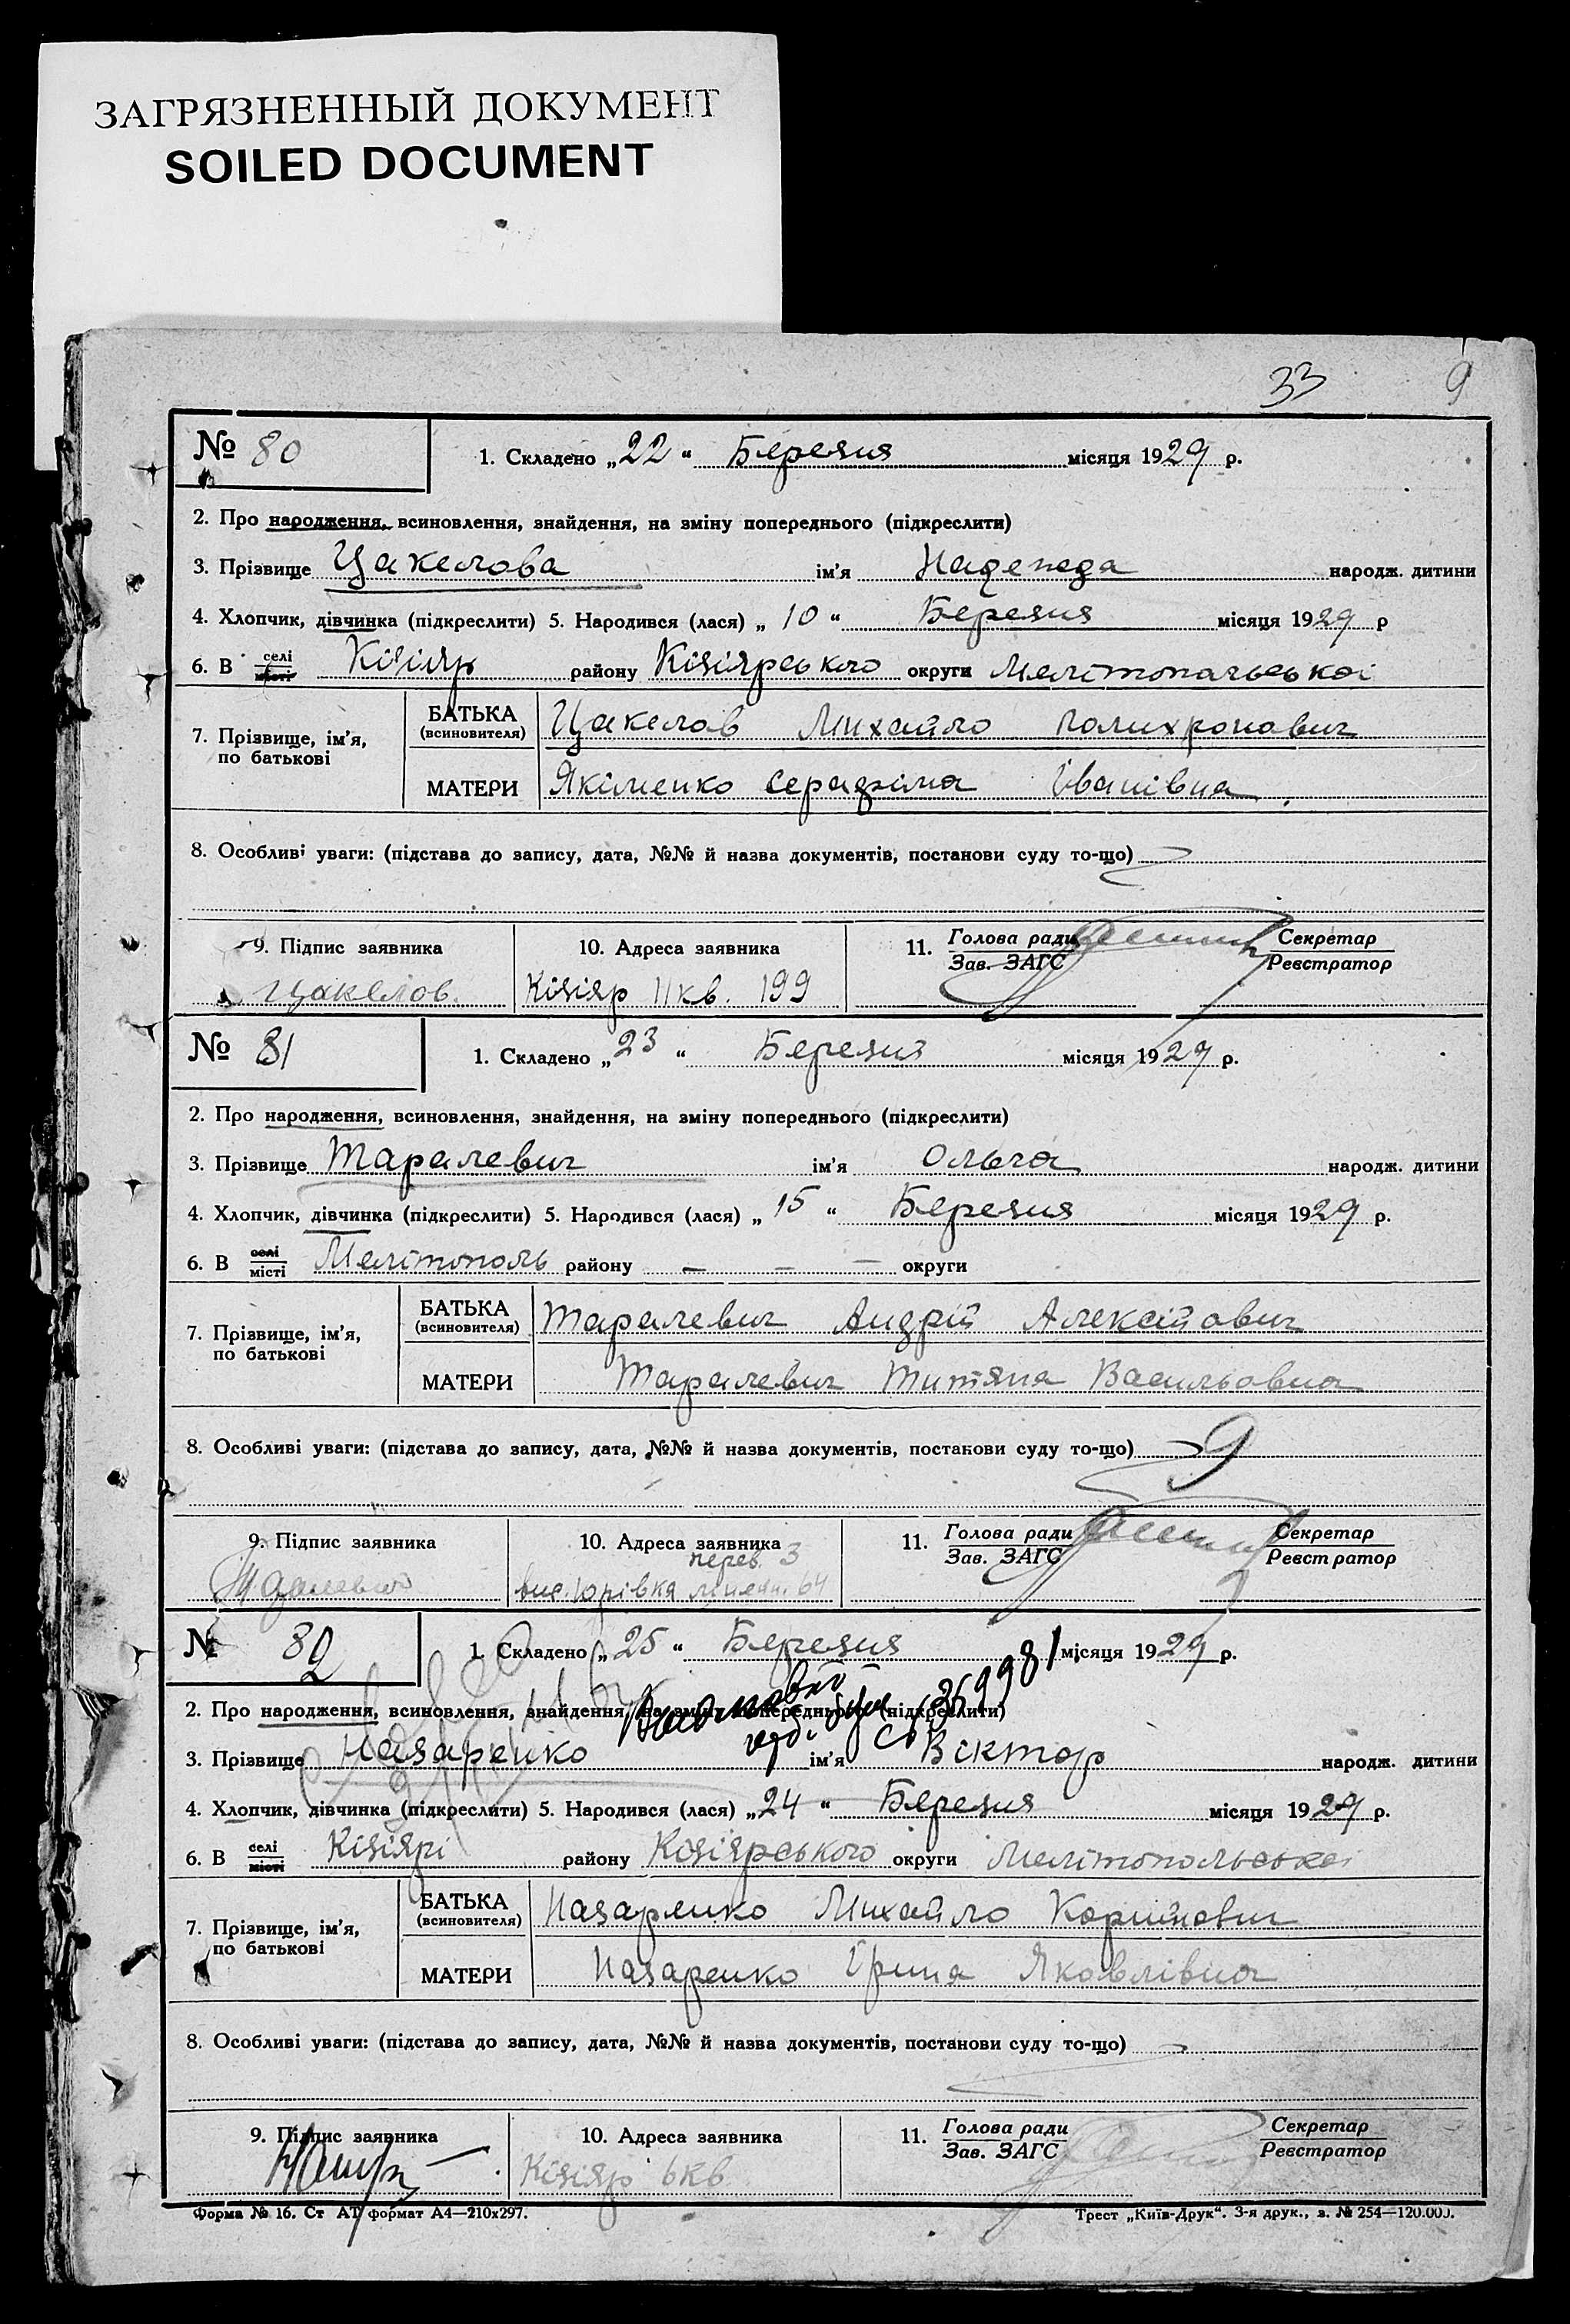 ЗАГРЯЗНЕННЫЙ ДОКУМЕНТ
SOILED DOCUMENT
33 9
№ 80 1. Складено „22“ Березня місяця 1929 р.
2. Про народження, всиновлення, знайдення, на зміну попереднього (підкреслити)
3. Прізвище Цакелова ім'я Надежда народж. дитини
4. Хлопчик, дівчинка (підкреслити) 5. Народився (лася) „10“ Березня місяця 1929 р
6. В селі місті Кізіяр району Кізіярського округи Мелітопольської
7. Прізвище, ім'я, по батькові
БАТЬКА (всиновителя) Цакелов Михайло Полихронович
МАТЕРИ Якіменко Серафіма Іванівна
8. Особливі уваги: (підстава до запису, дата, №№ й назва документів, постанови суду то-що)
9. Підпис заявника 10. Адреса заявника 11. Голова ради Зав. ЗАГС Секретар Реєстратор
Цакелов. Кізіяр II кв. 199
№ 81 1. Складено „23“ Березня місяця 1929 р.
2. Про народження, всиновлення, знайдення, на зміну попереднього (підкреслити)
3. Прізвище Таралевич ім'я Ольга народж. дитини
4. Хлопчик, дівчинка (підкреслити) 5. Народився (лася) „15“ Березня місяця 1929 р.
6. В селі місті Мелітополь району — — — округи
7. Прізвище, ім'я, по батькові
БАТЬКА (всиновителя) Таралевич Андрій Алексійович
МАТЕРИ Таралевич Титяна Васильовна
8. Особливі уваги: (підстава до запису, дата, №№ й назва документів, постанови суду то-що) 9
9. Підпис заявника 10. Адреса заявника 11. Голова ради Зав. ЗАГС Секретар Реєстратор
перев. 3
вис. Юрівка 64
№ 82 1. Складено „25“ Березня місяця 1929 р.
2. Про народження, всиновлення, знайдення, на зміну попереднього (підкреслити)
3. Прізвище Назаренко ім'я Віктор народж. дитини
4. Хлопчик, дівчинка (підкреслити) 5. Народився (лася) „24“ Березня місяця 1929 р.
6. В селі місті Кізіярі району Кізіярського округи Мелітопольської
7. Прізвище, ім'я, по батькові
БАТЬКА (всиновителя) Назаренко Михайло
МАТЕРИ Назаренко Ірина Яковлівна
8. Особливі уваги: (підстава до запису, дата, №№ й назва документів, постанови суду то-що)
9. Підпис заявника 10. Адреса заявника 11. Голова ради Зав. ЗАГС Секретар Реєстратор
Кізіяр 6 кв
Форма № 16. Ст АТ формат А4—210х297. Трест „Київ-Друк“. 3-я друк., з. № 254—120.000.